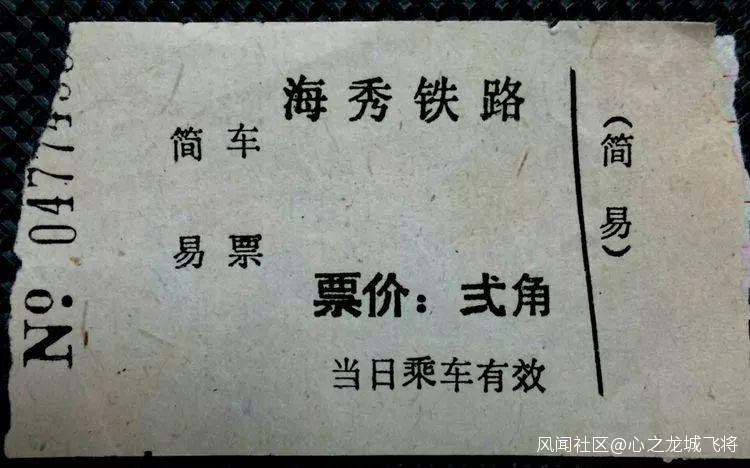 海秀铁路
简易
车票
票价：弍角
当日乘车有效
（简易）
№ 04774
风闻社区@心之龙城飞将